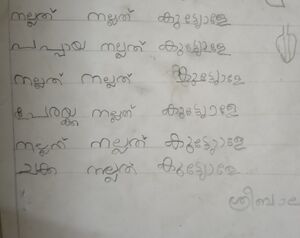 നല്ലത് നല്ലത് കുട്ട്യോളേ
പപ്പായ നല്ലത് കുട്ട്യോളേ
നല്ലത് നല്ലത് കുട്ട്യോളേ
പേരയ്ക്ക നല്ലത് കുട്ട്യോളേ
നല്ലത് നല്ലത് കുട്ട്യോളേ
ചക്ക നല്ലത് കുട്ട്യോളേ
ശ്രീബാല